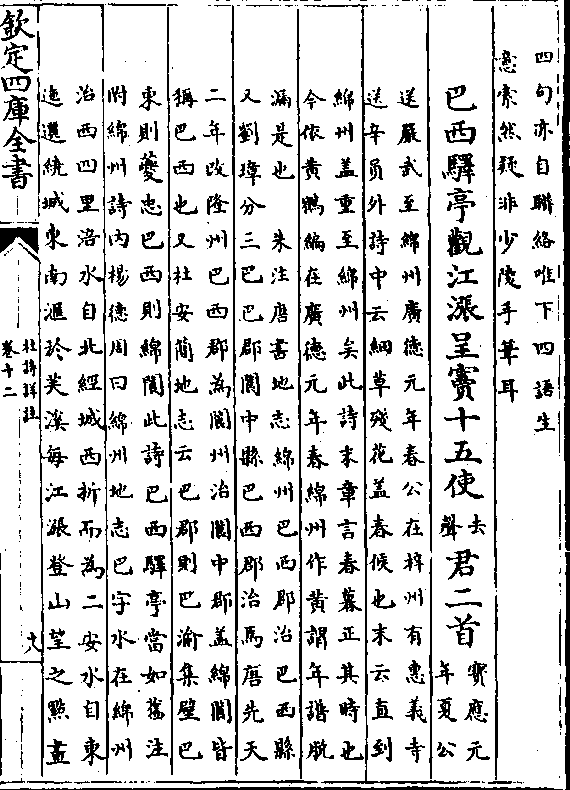 四句亦自聯絡唯下四語生
意索然疑非少陵手筆耳
巴西驛亭觀江漲呈竇十五使去聲君二首寶應元年夏公
送嚴武至綿州廣德元年春公在梓州有惠義寺
送辛員外詩中云細草殘花蓋春候也末云直到
綿州蓋重至綿州矣此詩末章言春暮正其時也
今依黄鶴編在廣德元年春綿州作黄謂年譜脱
漏是也 朱注唐書地志綿州巴西郡治巴西縣
又劉璋分三巴巴郡閬中縣巴西郡治焉唐先天
二年改隆州巴西郡為閬州治閬中郡蓋綿閬皆
稱巴西也又杜安簡地志云巴郡則巴渝集壁巴
東則夔忠巴西則綿閬此詩巴西驛亭當如舊注
附綿州詩内楊德周曰綿州地志巴字水在綿州
治西四里涪水自北經城西折而為二安水自東
迤邐繞城東南滙於芙溪每江漲登山望之㸃畫
欽定四庫全書
杜詩詳註
卷十二
十八